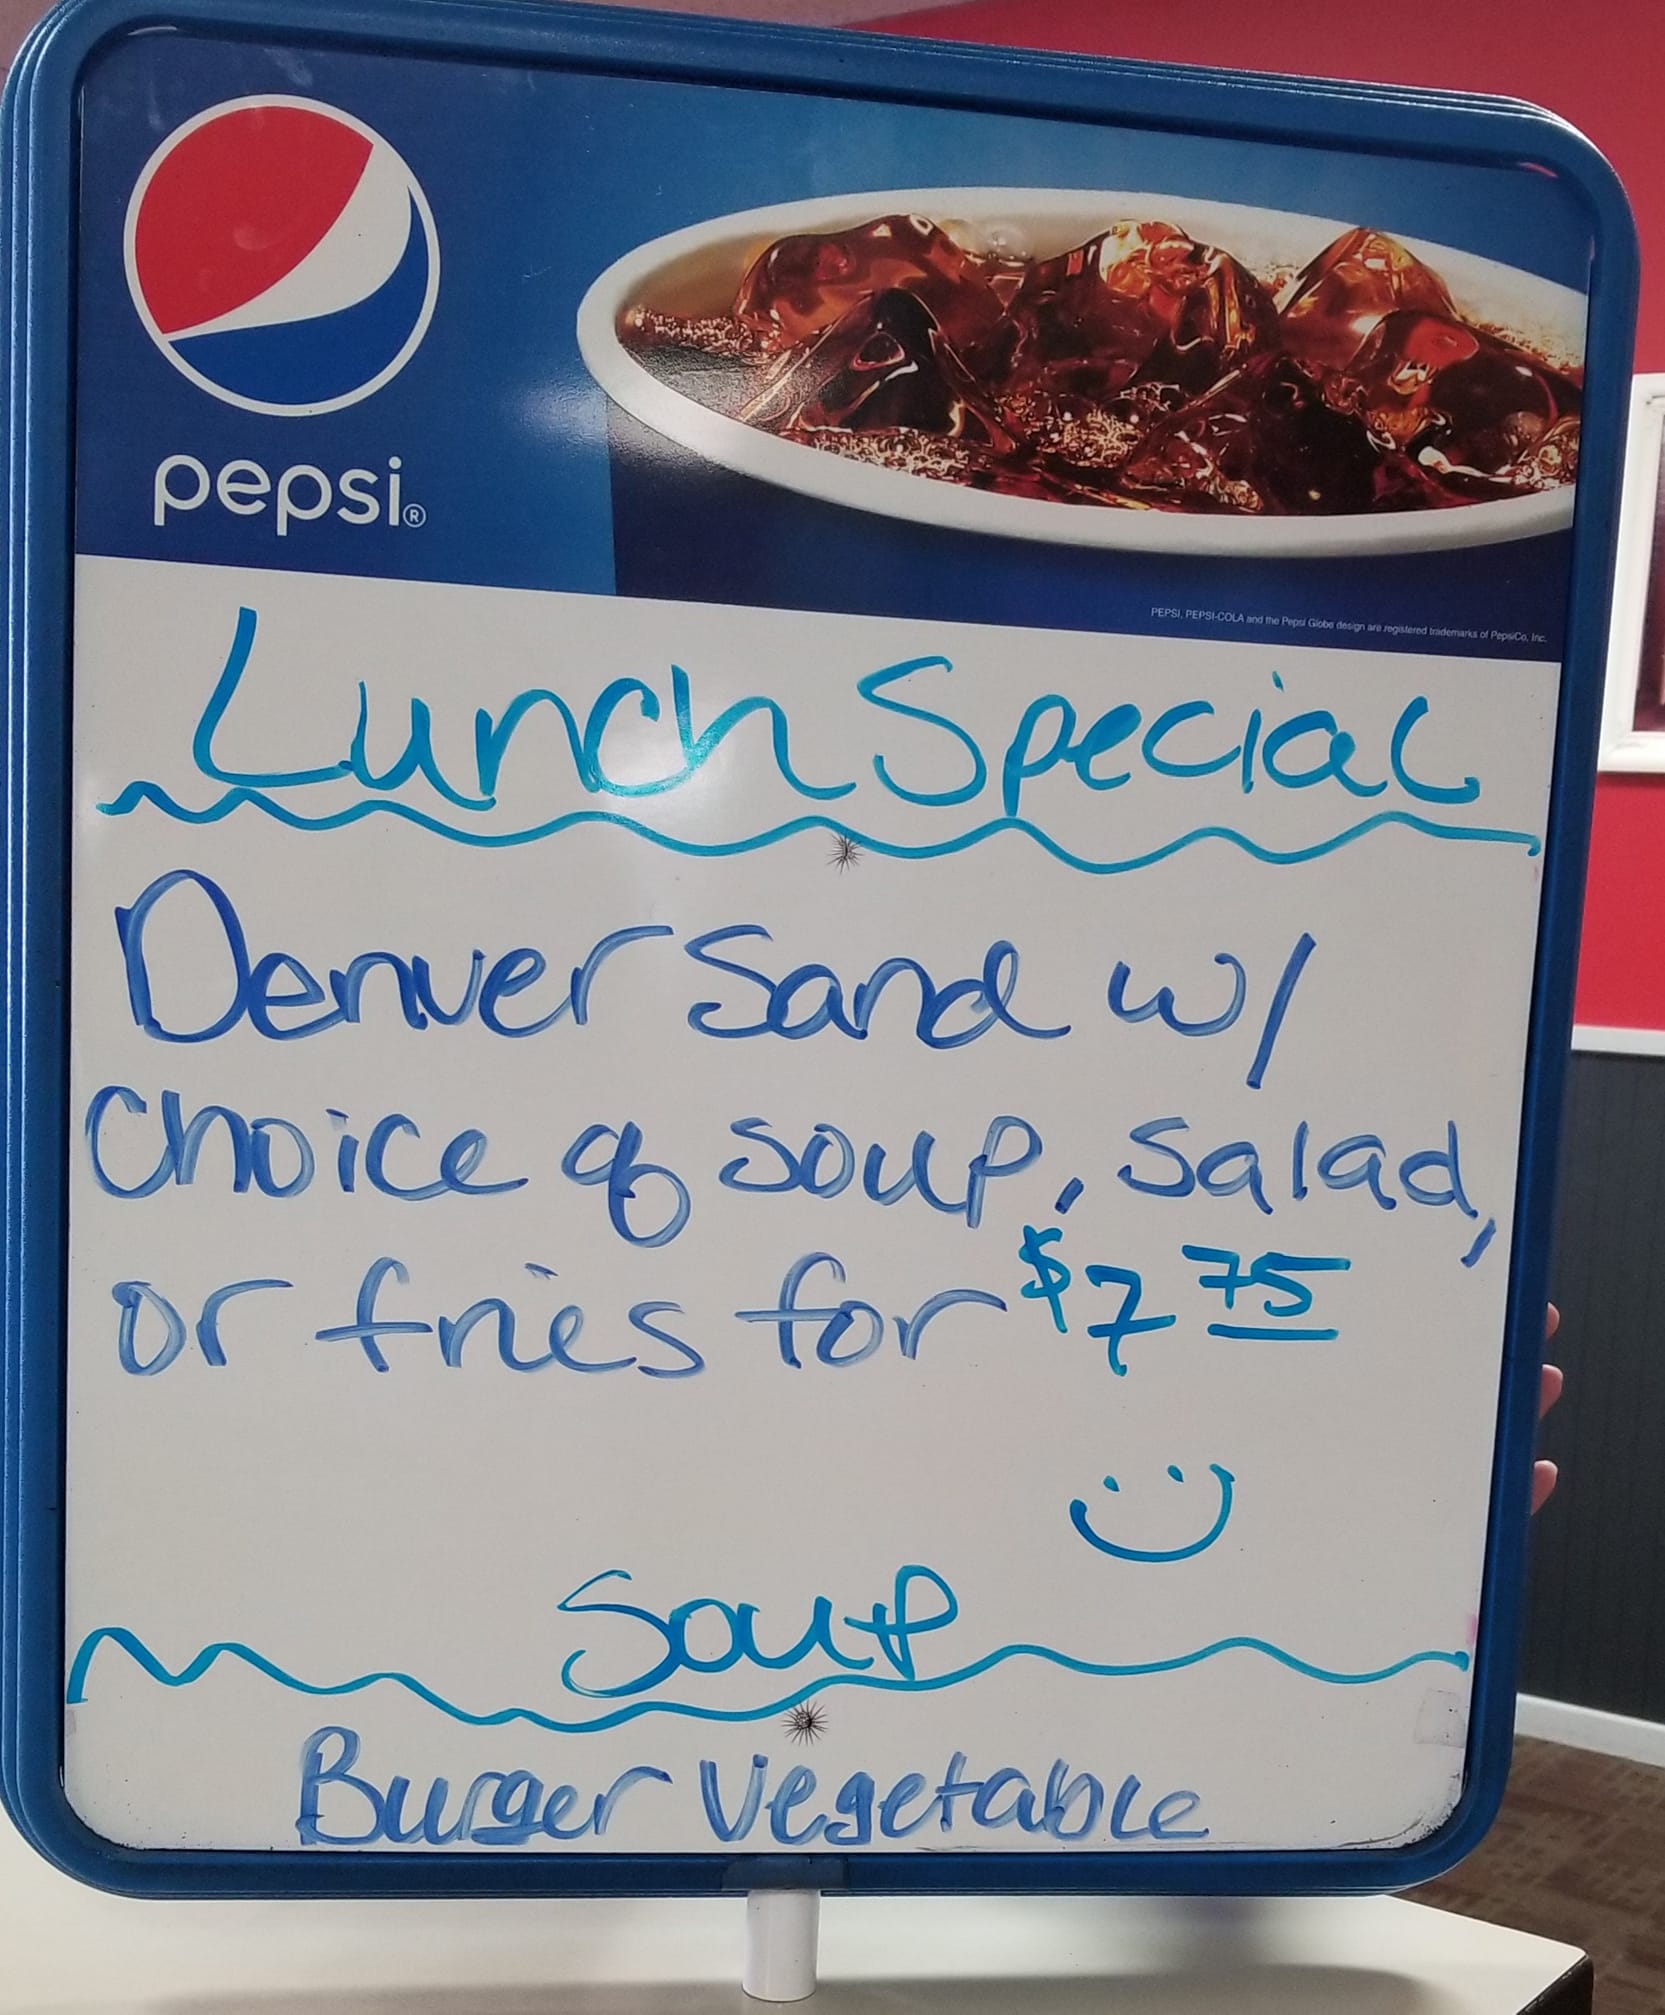 pepsi®
PEPSI, PEPSI-COLA and the Pepsi Globe design are registered trademarks of PepsiCo, Inc.
Lunch Special
Denver Sand w/
Choice of soup, salad,
or fries for $7 75
Soup
Burger Vegetable